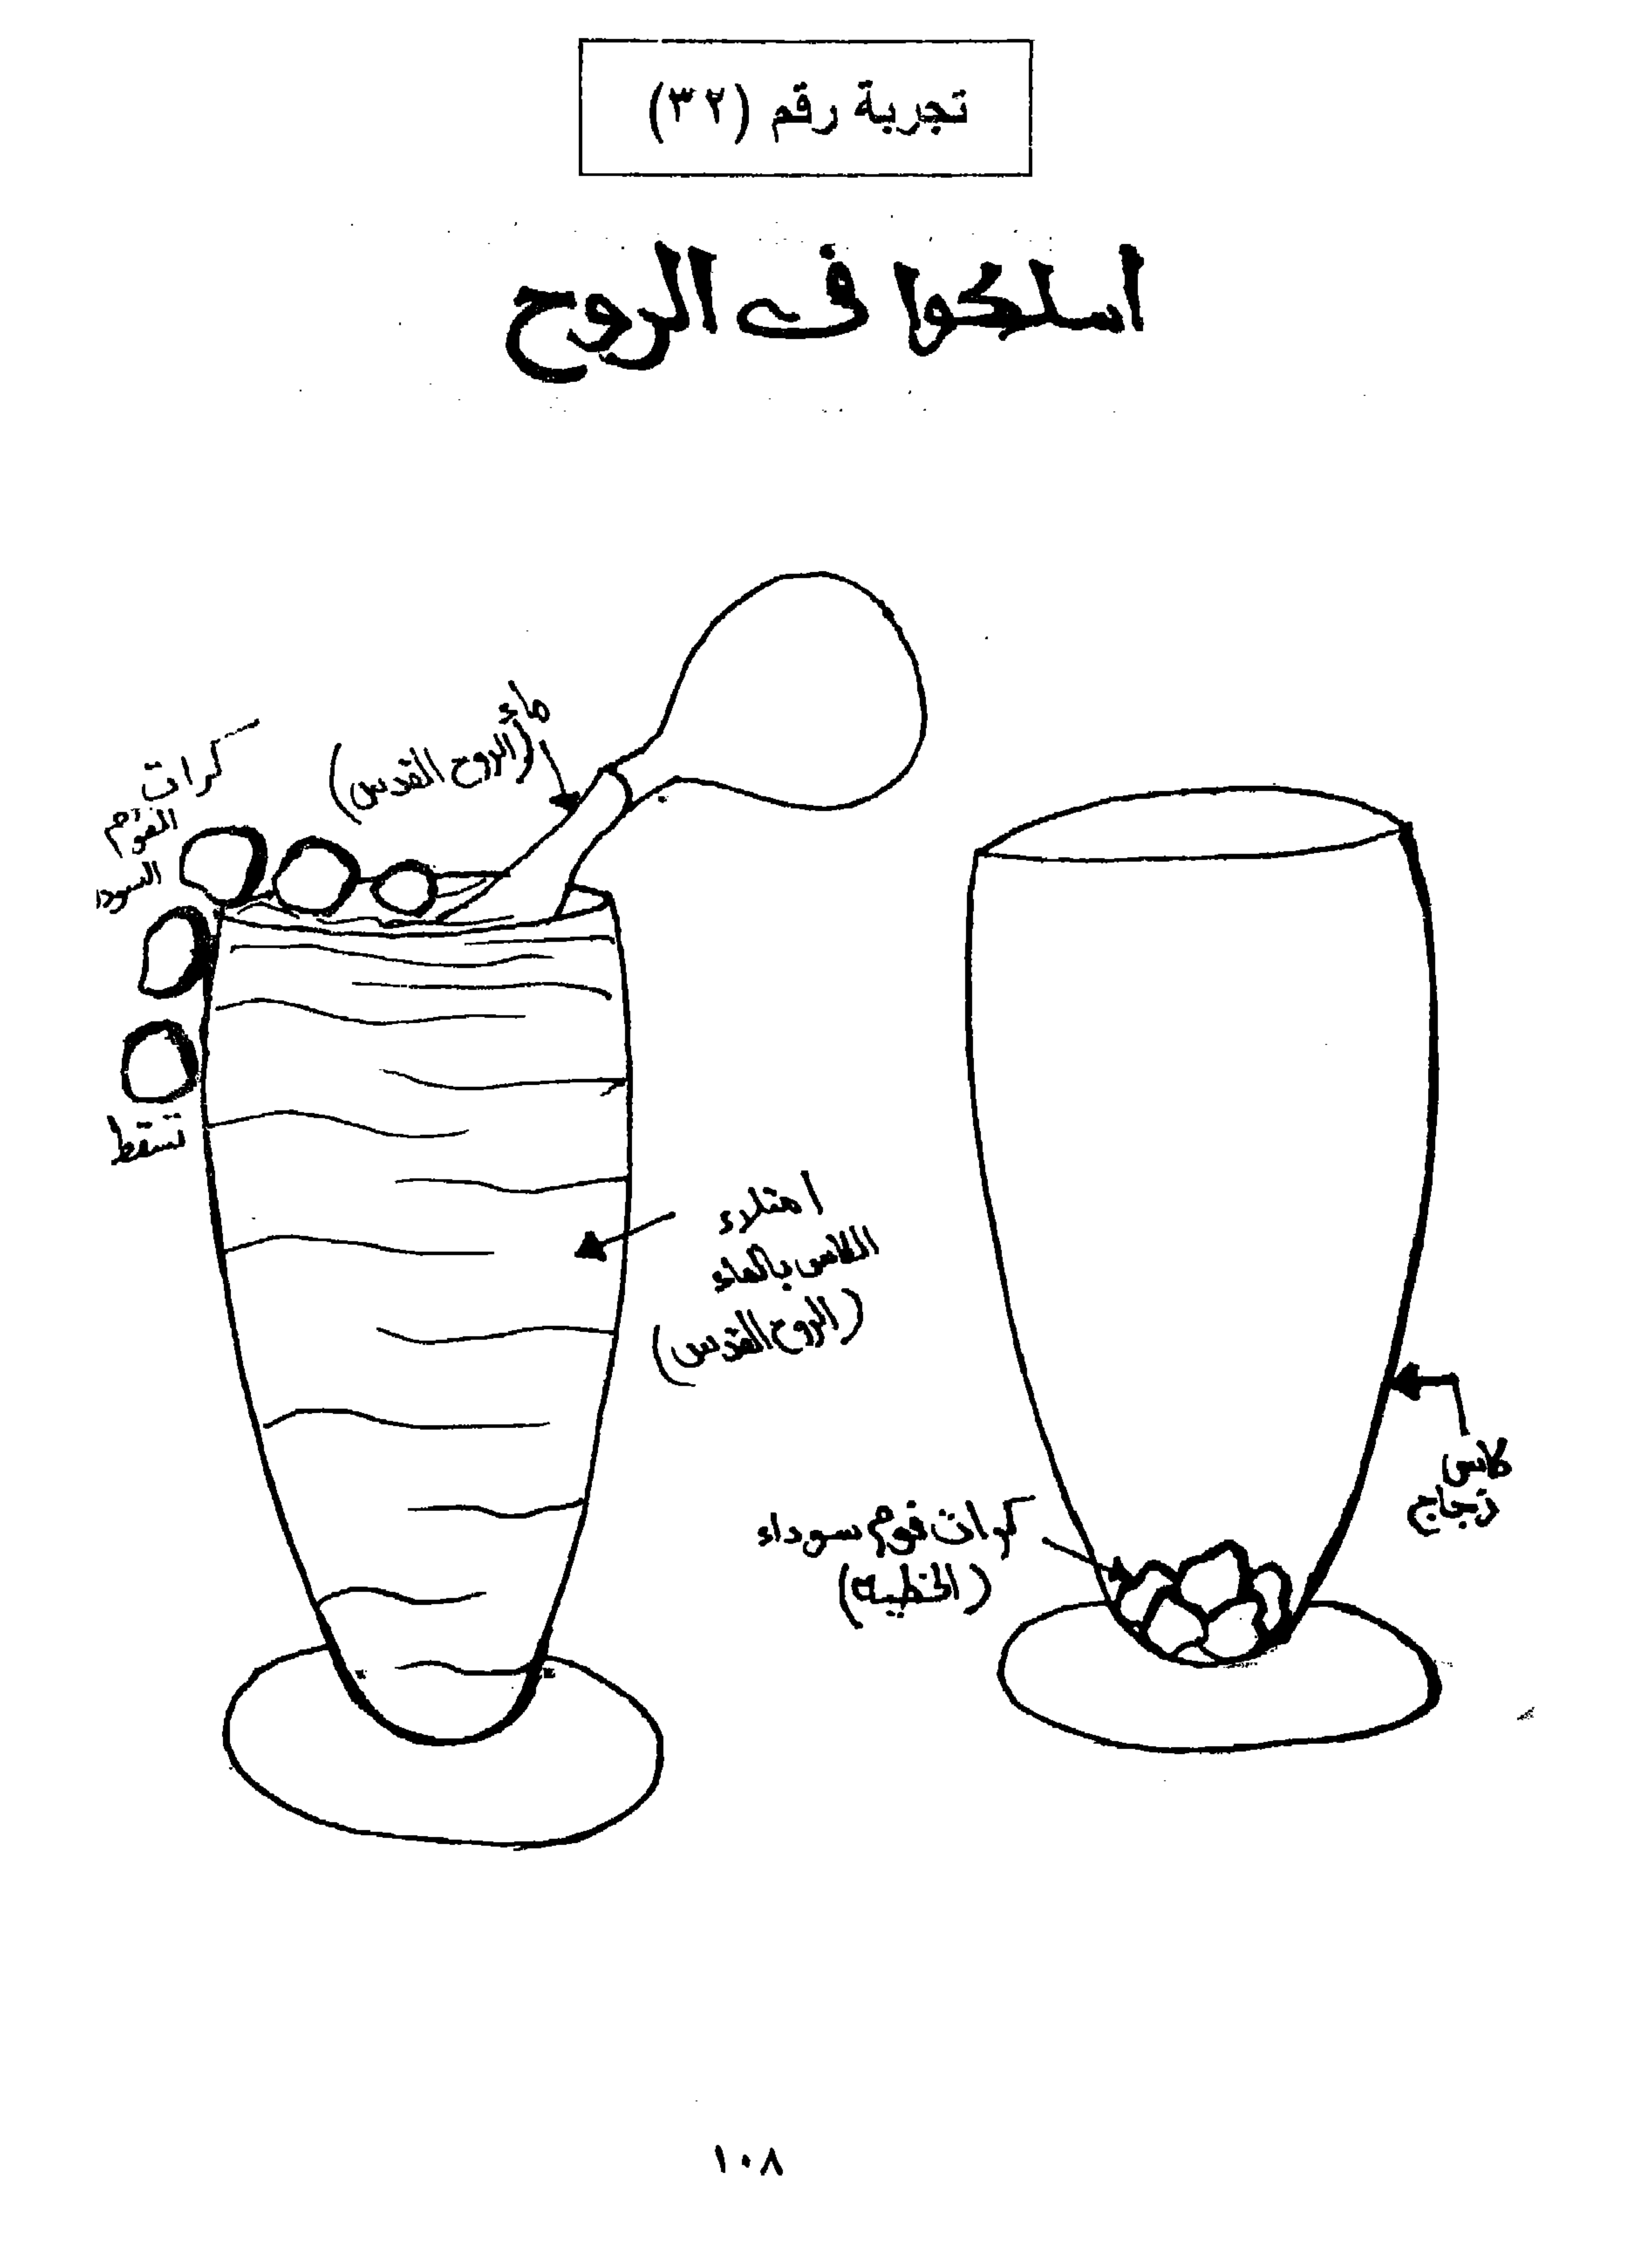 تجربة رقم (٣٢)
اسلكوا فى الروح
ماء
(الروح القدس)
كرات
الفوم
السودا
تسقط
امتلاء
الكاس بالماء
(الروح القدس)
كاس
زجاج
كرات فوم سوداء
(الخطية)
١٠٨